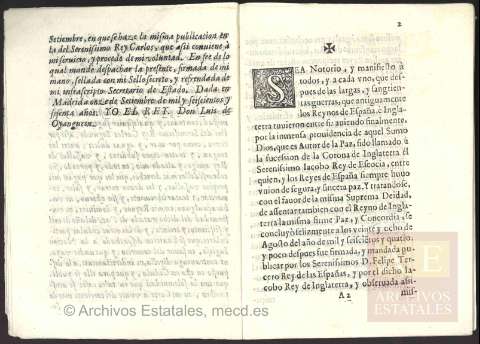 Setiembre, en que se haze la misma publicacion en
la del Serenissimo Rey Carlos, que assi conviene à
mi servicio, y procede de mi voluntad. En fee de lo
qual mande despachar la presente, firmada de mi
mano, sellada con mi Sello secreto, y refrendada de
mi infrascripto Secretario de Estado. Dada en
Madrid a de Setiembre de mil y seiscientos y
sesenta años. YO EL REY. Don Luis de
Oyanguren.
2
SEA Notorio, y manifiesto à
todos, y a cada vno, que des-
pues de las largas, y sangrien-
tas guerras, que antiguamente
los Reynos de España, è Ingla-
terra tuvieron entre si, auiendo finalmente,
por la inmensa prouidencia de aquel Sumo
Dios, que es Autor de la Paz, sido llamado à
la sucession de la Corona de Inglaterra el
Serenissimo Iacobo Rey de Escocia, entre
quien, y los Reyes de España siempre huuo
vnion de segura, y sincera paz. Y tratandose,
con el fauor de la misma Suprema Deidad,
de assentar tambien con el Reyno de Ingla-
terra la misma firme Paz, y Concordia, se
concluyò felizmente a los veinte y ocho de
Agosto del año de mil y seiscientos y quatro,
y poco despues fue firmada, y mandada pu-
blicar por los Serenissimos D. Felipe Ter-
cero Rey de las Españas, y por el dicho Ia-
cobo Rey de Inglaterra, y obseruada assi-
A 2 mis-
© Archivos Estatales, mecd.es
ARCHIVOS
ESTATALES